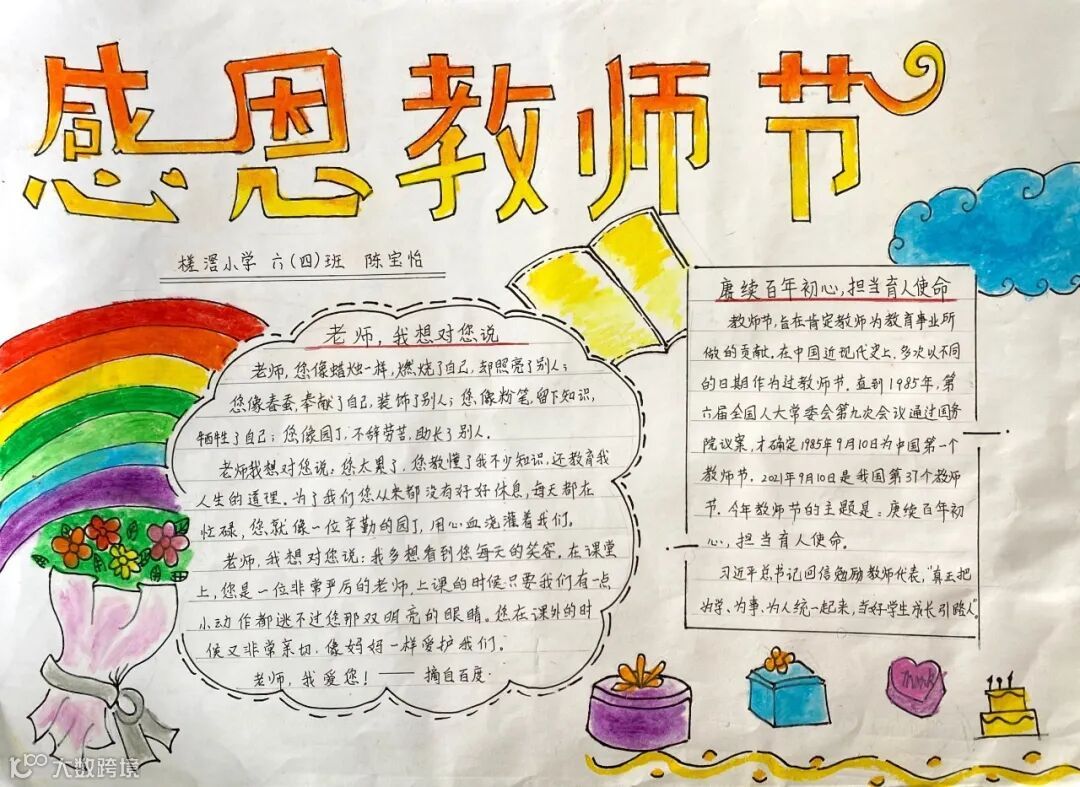 感恩教师节
槎滘小学 六(四)班 陈宝怡
老师,我想对您说
老师,您像蜡烛一样,燃烧了自己,却照亮了别人;
您像春蚕,奉献了自己,装饰了别人;您像粉笔,留下知识,
牺牲了自己;您像园丁,不辞劳苦,助长了别人。
老师我想对您说:您太累了,您教懂了我不少知识,还教育我
人生的道理。为了我们您从来都没有好好休息,每天都在
忙碌,您就像一位辛勤的园丁,用心血浇灌着我们。
老师,我想对您说:我多想看到您每天的笑容。在课堂
上,您是一位非常严厉的老师。上课的时候,只要我们有一点
小动作都逃不过您那双明亮的眼睛。您在课外的时
候又非常亲切,像妈妈一样爱护我们。
老师,我爱您!——摘自百度
赓续百年初心,担当育人使命
教师节,旨在肯定教师为教育事业所
做的贡献,在中国近现代史上,多次以不同
的日期作为过教师节.直到1985年,第
六届全国人大常委会第九次会议通过国务
院议案,才确定1985年9月10日为中国第一个
教师节.2021年9月10日是我国第37个教师
节.今年教师节的主题是:赓续百年初
心,担当育人使命.
习近平总书记回信勉励教师代表,"真正把
为学、为事、为人统一起来,当好学生成长引路人"
大数跨境